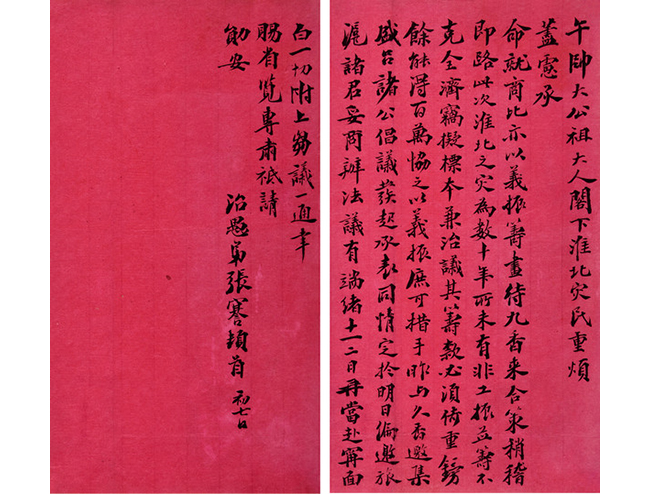 午帥大公祖大人閣下淮北災民重煩
藎憲承
命就商比亦以義振籌畫待九香來合策稍稽
即路此次淮北之災為數十年所未有非工振益籌不
克全濟竊擬標本兼治議其以籌款必須倚重鎊
餘能得百萬協之以義振庶可措手昨與久香邀集
咸台諸公倡議發起承表同情定於明日徧邀旅
滬諸君妥商辦法議有端緒十一二日再當赴寧面
白一切附上芻議一通幸
賜省覽專肅祗請
勛安
治愚弟張謇頓首 初七日